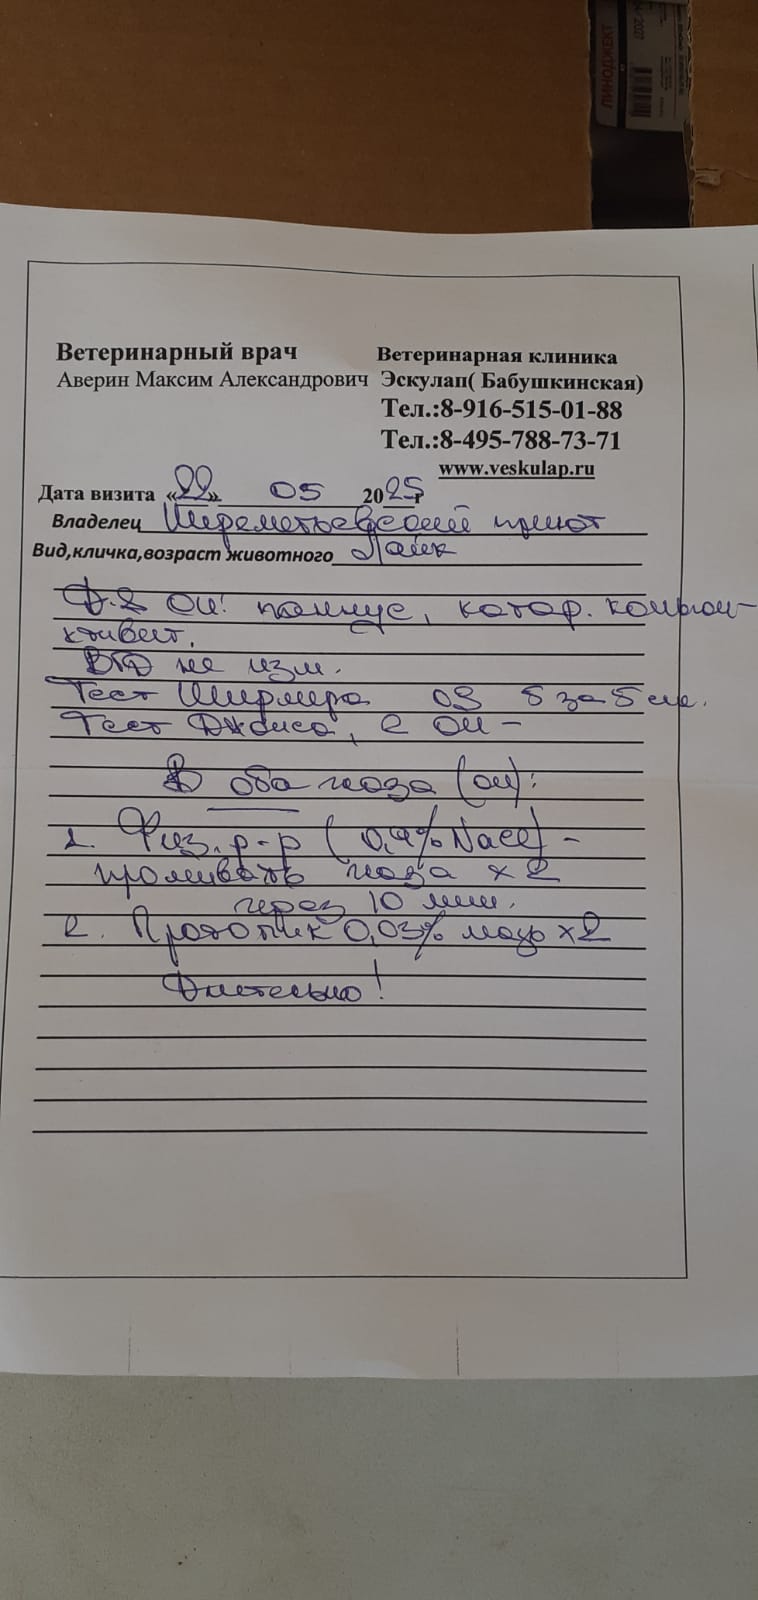 ЛИНОДЖЕКТ
Ветеринарный врач
Аверин Максим Александрович
Ветеринарная клиника
Эскулап( Бабушкинская)
Тел.:8-916-515-01-88
Тел.:8-495-788-73-71
www.veskulap.ru
Дата визита «22» 05 2025г
Владелец Шереметьевский приют
Вид,кличка,возраст животного Лайк
OU: паннус, катар. конъюн-
ктивит.
ВГД не изм.
Тест Ширмера OS 5 за 5 сек.
Тест Джонса, с OU -
В оба глаза (OU):
1. Физ. р-р (0,9% NaCl) -
промывать глаза x2
через 10 мин.
2. Протопик 0,03% мазь x2
Длительно!